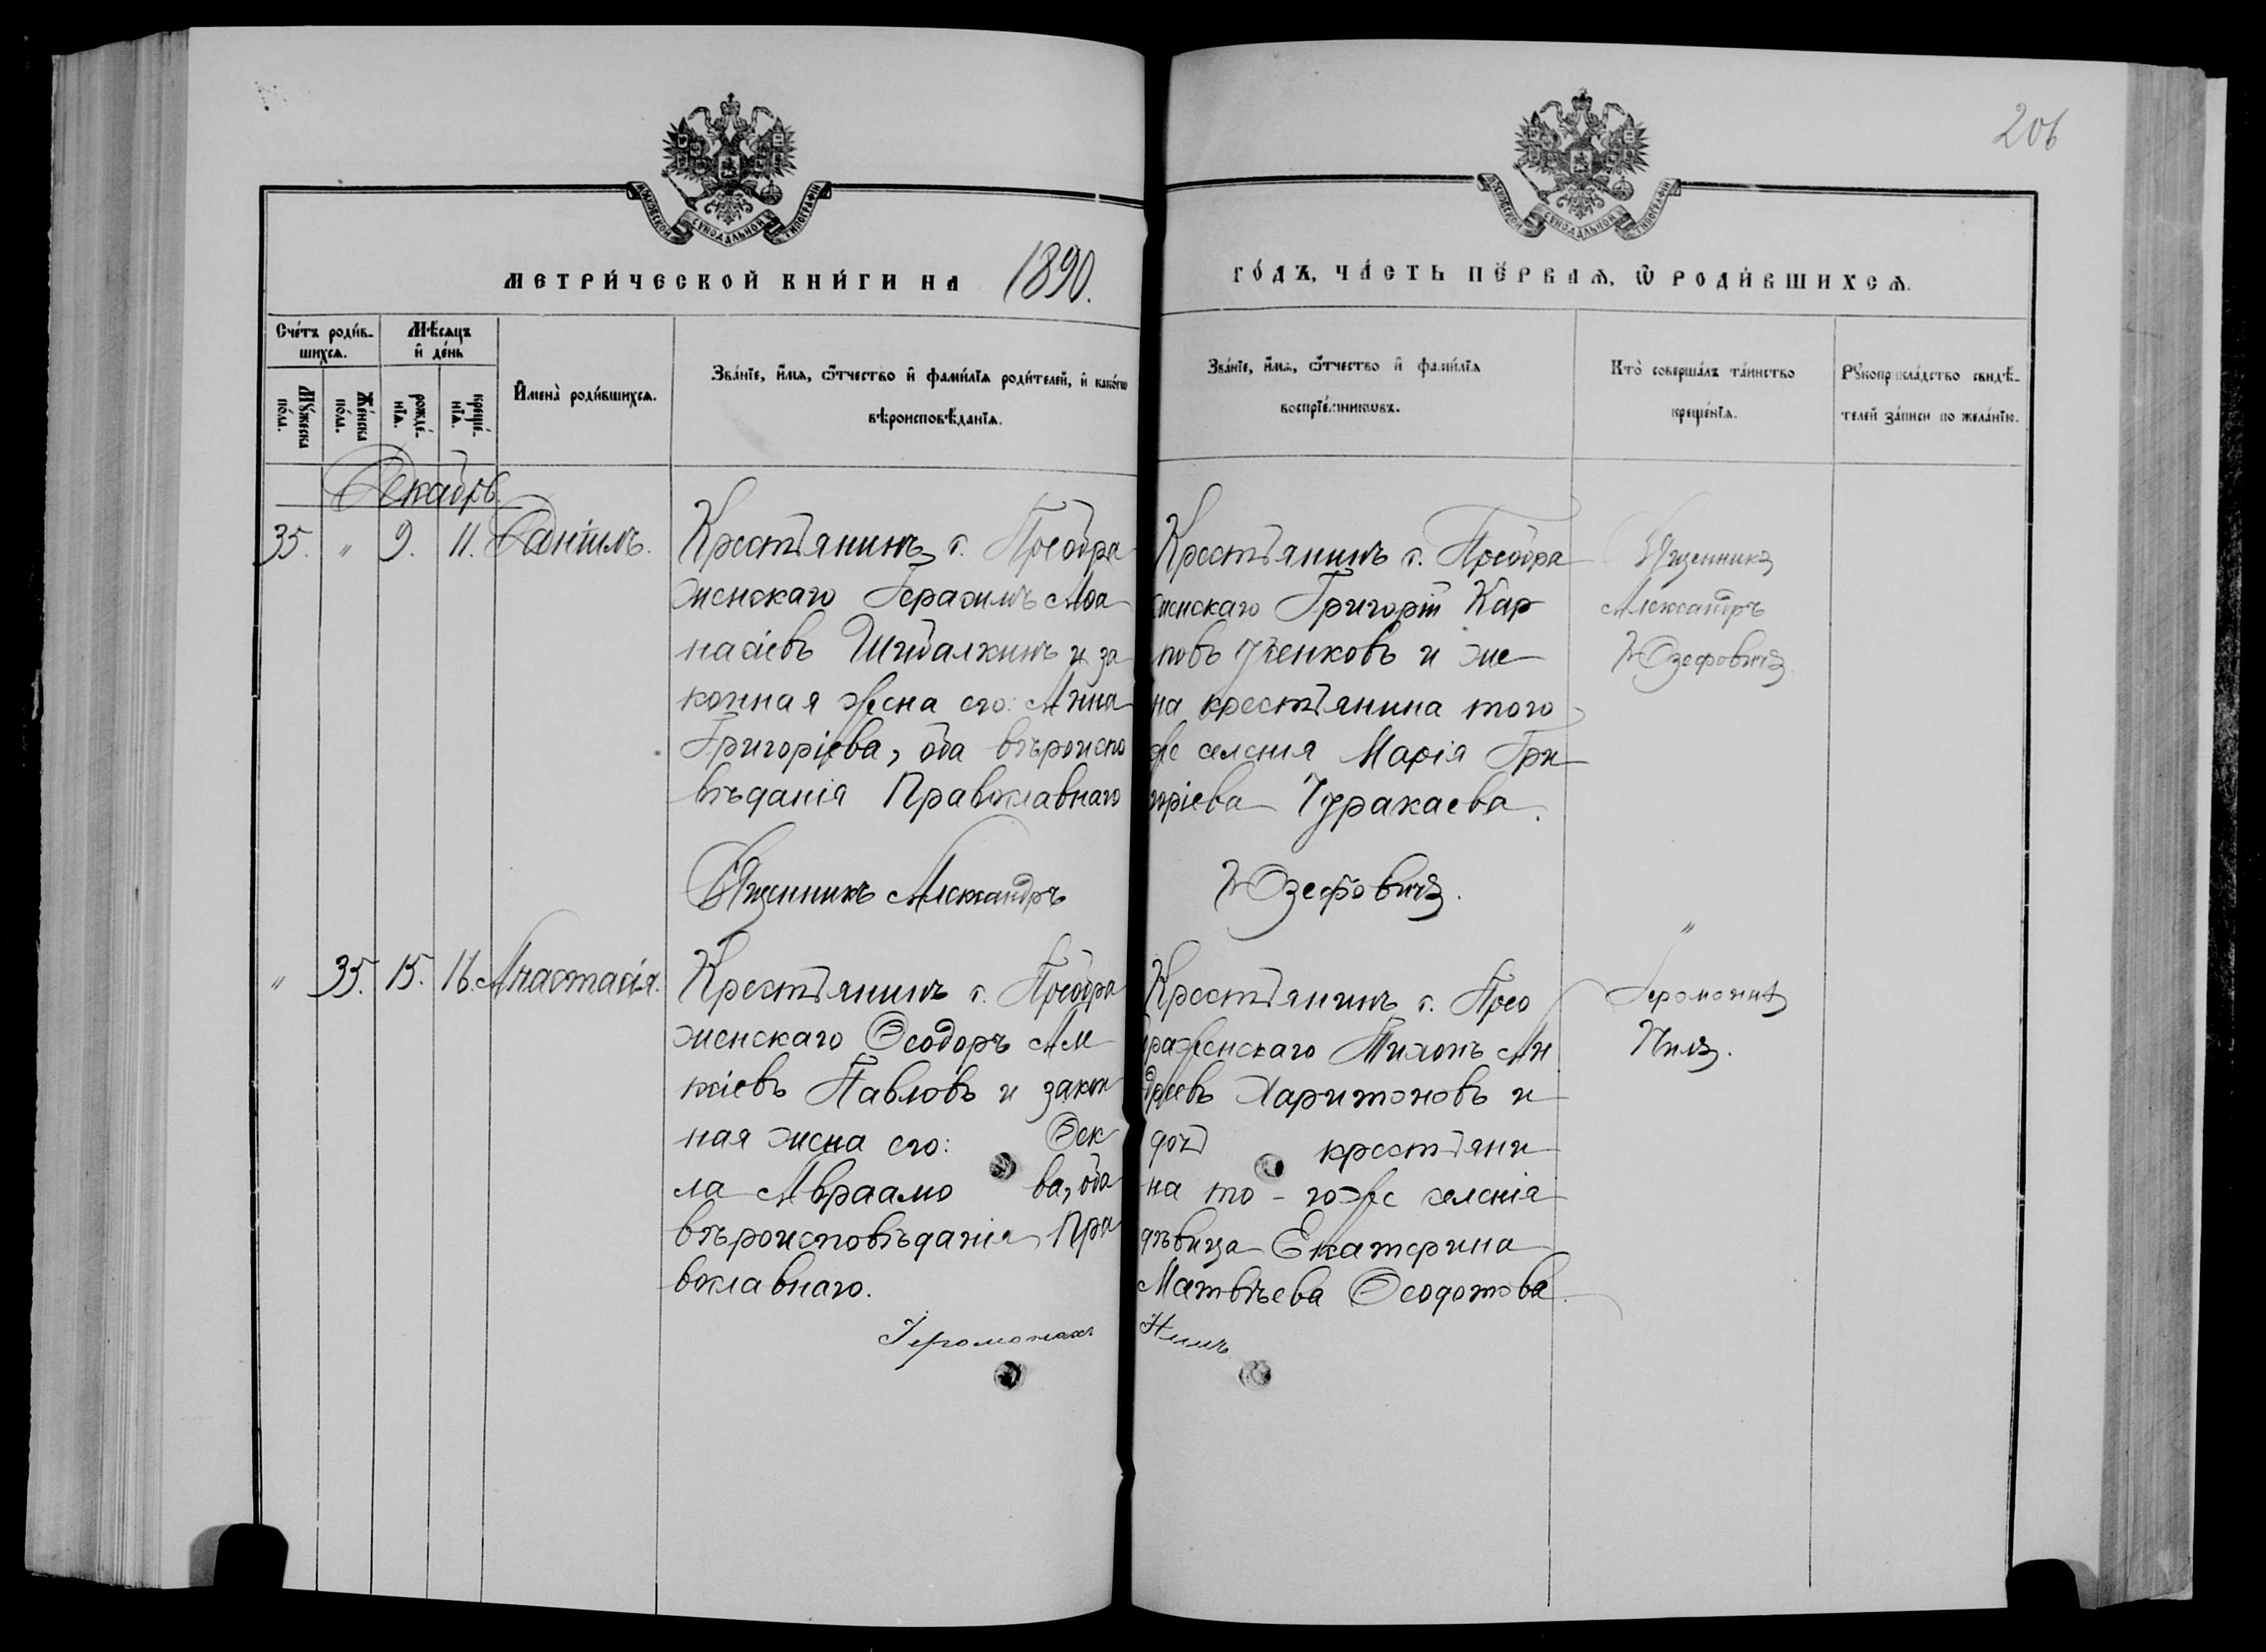 206
МОСКОВСКОЙ СУНОДАЛЬНОЙ ТИПОГРАФІИ
МОСКОВСКОЙ СУНОДАЛЬНОЙ ТИПОГРАФІИ
МЕТРИ́ЧЕСКОЙ КНИ́ГИ НА 1890.
ГО́ДЪ, ЧА́СТЬ ПЕ́РВАѦ, Ѡ РОДИ́ВШИХСѦ.
Сче́тъ роди́в-
шихсѧ.
Мѣ́сѧцъ
и҆ де́нь
Му́жеска
по́ла.
Же́нска
по́ла.
рожде́-
нїѧ.
креще́-
нїѧ.
И҆мена̀ роди́вшихсѧ.
Зва́нїе, и҆́мѧ, ѻ҆́тчество и҆ фами́лїѧ роди́телей, и҆ како́гѡ
вѣроисповѣ́данїѧ.
Зва́нїе, и҆́мѧ, ѻ҆́тчество и҆ фами́лїѧ
воспрїе́мникѡвъ.
Кто̀ соверша́лъ та́инство
креще́нїѧ.
Рꙋкоприкла́дство свидѣ́-
телей за́писи по жела́нїю.
Декабрь
35. " 9. 11. Даніилъ.
Крестьянинъ с. Преобра
женскаго Герасимъ Афа
насіевъ Шибалкинъ и за
конная жена его: Анна
Григоріева, оба вѣроиспо
вѣданія Православнаго
Священникъ Александръ
Крестьянинъ с. Преобра
женскаго Григорій Кар
повъ Ученковъ и же
на крестьянина того
же селенія Марія Гри
горіева Чуракаева.
Юзефовичъ.
Священникъ
Александръ
Юзефовичъ.
" 35. 15. 16. Анастасія.
Крестьянинъ с. Преобра
женскаго Ѳеодоръ Але
ксіевъ Павловъ и закон
ная жена его: Ѳек
ла Авраамо ва, оба
вѣроисповѣданія Пра
вославнаго.
Іеромонахъ
Крестьянинъ с. Прео
браженскаго Тихонъ Ан
дреевъ Харитоновъ и
дочь крестьяни
на то - гоже селенія
дѣвица Екатерина
Матвѣева Ѳеодотова.
Нилъ
"
Іеромонахъ
Нилъ.